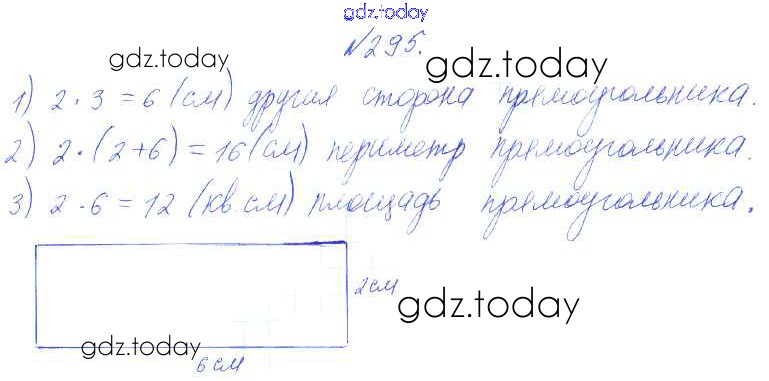 gdz.today
№295.
gdz.today
gdz.today
1) 2 · 3 = 6 (см) другая сторона прямоугольника.
2) 2 · (2+6) = 16 (см) периметр прямоугольника.
gdz.today
gdz.today
3) 2 · 6 = 12 (кв. см) площадь прямоугольника.
2 см
gdz.today
gdz.today
6 см